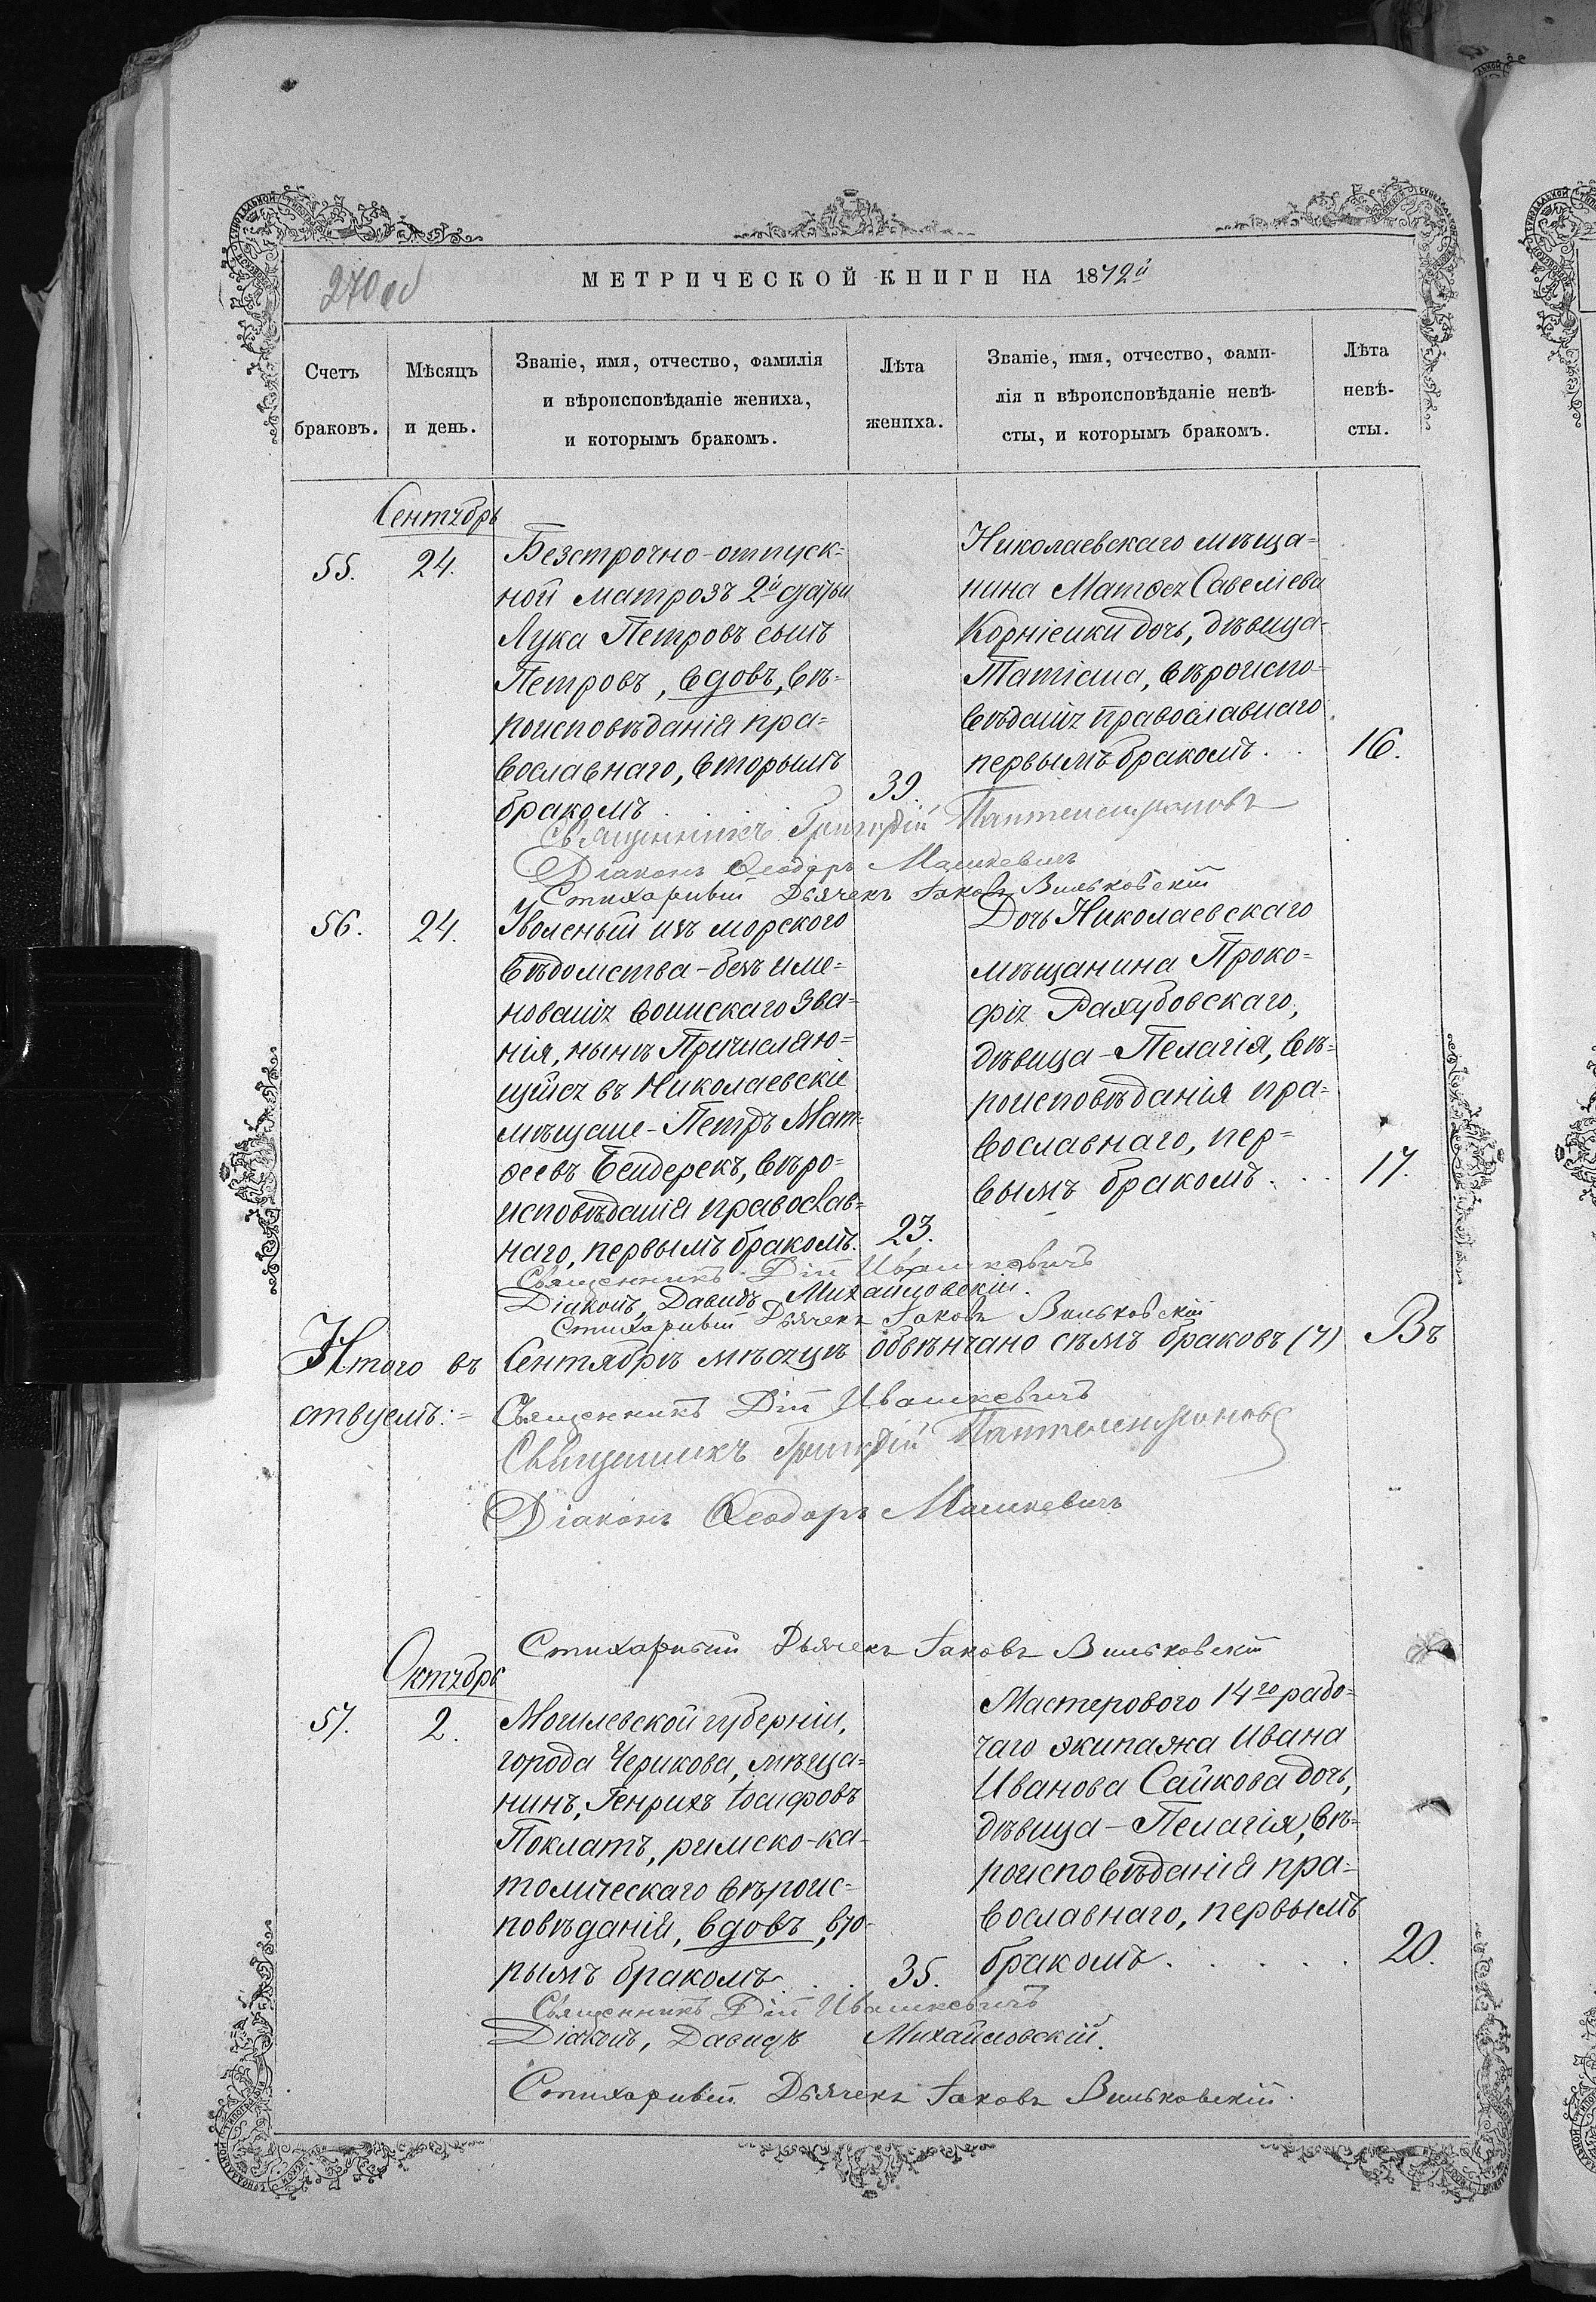 270 об
МЕТРИЧЕСКОЙ КНИГИ НА 1872й
Счетъ браковъ.
Мѣсяцъ и день.
Званіе, имя, отчество, фамилія
и вѣроисповѣданіе жениха,
и которымъ бракомъ.
Лѣта
жениха.
Званіе, имя, отчество, фами-
лія и вѣроисповѣданіе невѣ-
сты, и которымъ бракомъ.
Лѣта
невѣ-
сты.
Сентябрь
55.
24.
Безсрочно-отпуск=
ной матрозъ 2й статьи
Лука Петровъ сынъ
Петровъ, вдовъ, вѣ-
роисповѣданія пра=
вославнаго, вторымъ
бракомъ
39.
Николаевскаго мѣща=
нина Матѳея Савеліева
Корніенки дочь, дѣвица-
Татіана, вѣроиспо=
вѣданія православнаго
первымъ бракомъ. .
16.
Священникъ Григорій Пантелеимоновъ
Діаконъ Ѳеодоръ Машкевичъ
Стихарный Дьячекъ Іаковъ Вильковскій
56.
24.
Уволеный изъ морского
вѣдомства-безъ име=
нованія воинскаго зва=
нія, нынѣ Причисляю=
щійся въ Николаевскіе
мѣщане-Петръ Мат=
ѳеевъ Бендерекъ, вѣро=
исповѣданія православ=
наго, первымъ бракомъ.
23.
Дочь Николаевскаго
мѣщанина Проко=
фія Рахубовскаго,
дѣвица-Пелагія, вѣ=
роисповѣданія пра=
вославнаго, пер=
вымъ бракомъ. . .
17.
Священникъ Дій Ивашкевичъ
Діаконъ, Давидъ Михайловскій.
Стихарный Дьячекъ Іаковъ Вильковскій
Итого въ Сентябрѣ мѣсяцѣ обвѣнчано сѣмъ браковъ (7) Въ
ствуемъ:= Священникъ Дій Ивашкевичъ
Священникъ Григорій Пантелеимоновъ
Діаконъ Ѳеодоръ Машкевичъ
Стихарный Дьячекъ Іаковъ Вильковскій
Октябрь
57.
2.
Могилевской губерніи,
города Черикова, мѣща=
нинъ, Генрихъ Іосифовъ
Поклатъ, римско-ка-
толическаго вѣроис=
повѣданія, вдовъ, вто-
рымъ бракомъ. . .
35.
Мастерового 14го рабо=
чаго экипажа Ивана
Иванова Сайкова дочь,
дѣвица-Пелагія, вѣ=
роисповѣданія пра=
вославнаго, первымъ
бракомъ. . . . . .
20.
Священникъ Дій Ивашкевичъ
Діаконъ, Давидъ Михайловскій.
Стихарный Дьячекъ Іаковъ Вильковскій.